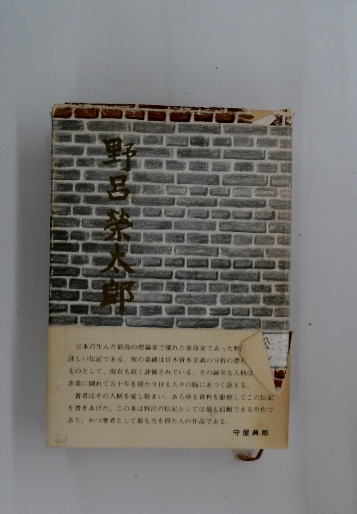 野呂榮太郎
日本の生んだ最高の理論家で優れた革命家であった野
詳しい伝記である。彼の業績は日本資本主義の分析の礎
ものとして、現在も高く評価されている。その誠実な人柄は
非業に倒れて五十年を経た今日も人々の胸にあつく訴える。
著者はその人柄を愛し敬まい、あらゆる資料を駆使してこの伝記
を書きあげた。この本は野呂の伝記としては最も信頼できる労作で
あり、かつ著者として最も当を得た人の作品である。
守屋典郎